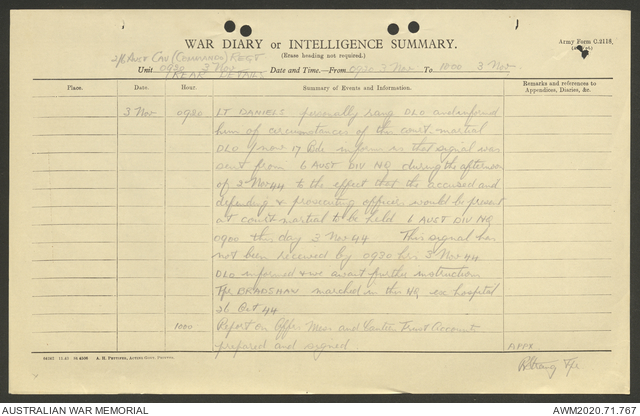 WAR DIARY or INTELLIGENCE SUMMARY.
(Erase heading not required.)
Army Form C.2118.
Aust Cav (Commando) Regt
Unit 0930 3 Nov Date and Time—From 0930 3 Nov To 1800 3 Nov.
(REAR DETAILS
Place. Date. Hour. Summary of Events and Information. Remarks and references to Appendices, Diaries, &c.
3 Nov 0930 LT DANIELS personally rang DLO and informed
him of circumstances of the court martial
DLO from 17 Bde informs us that signal was
sent from 6 AUST DIV HQ during the afternoon
of 2 Nov 44 to the effect that the accused and
defending & prosecuting officers would be present
at court martial to be held 6 AUST DIV HQ
0900 this day 3 Nov 44 This signal has
not been received by 0930 hrs 3 Nov 44.
DLO informed & we await further instruction
Tpr BRADSHAW marched in this HQ ex hospital
31 Oct 44
1000 Report on Offrs Mess and Canteen Trust Account
prepared and signed. APPX
Tpr
A. H. PETTIFER, ACTING GOVT. PRINTER.
AUSTRALIAN WAR MEMORIAL
AWM2020.71.767